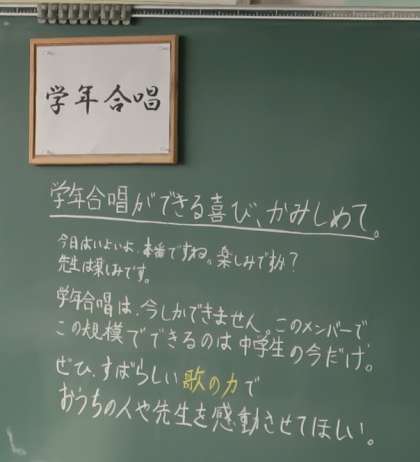 学年合唱
学年合唱ができる喜び、かみしめて。
今日はいよいよ、本番ですね。楽しみですか？
先生は楽しみです。
学年合唱は、今しかできません。このメンバーで
この規模でできるのは中学生の今だけ。
ぜひ、すばらしい歌の力で
おうちの人や先生を感動させてほしい。